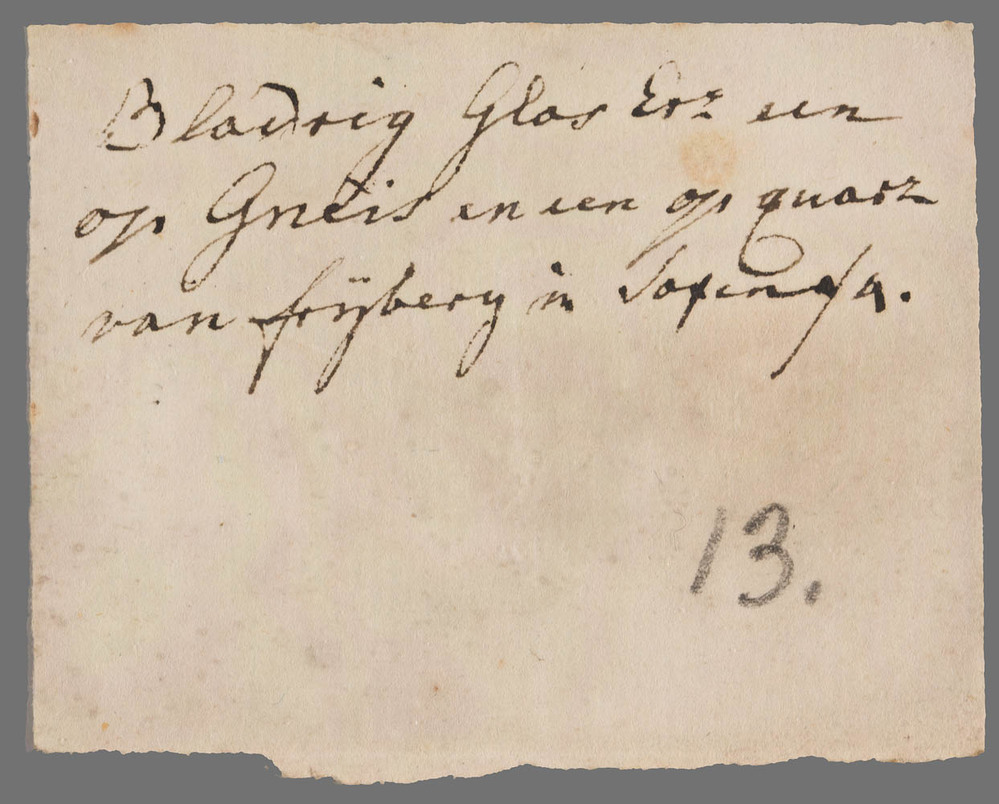 Bladrig Glas Erz een
op Gneis en een op quarz
van frijberg in Saxen
13.